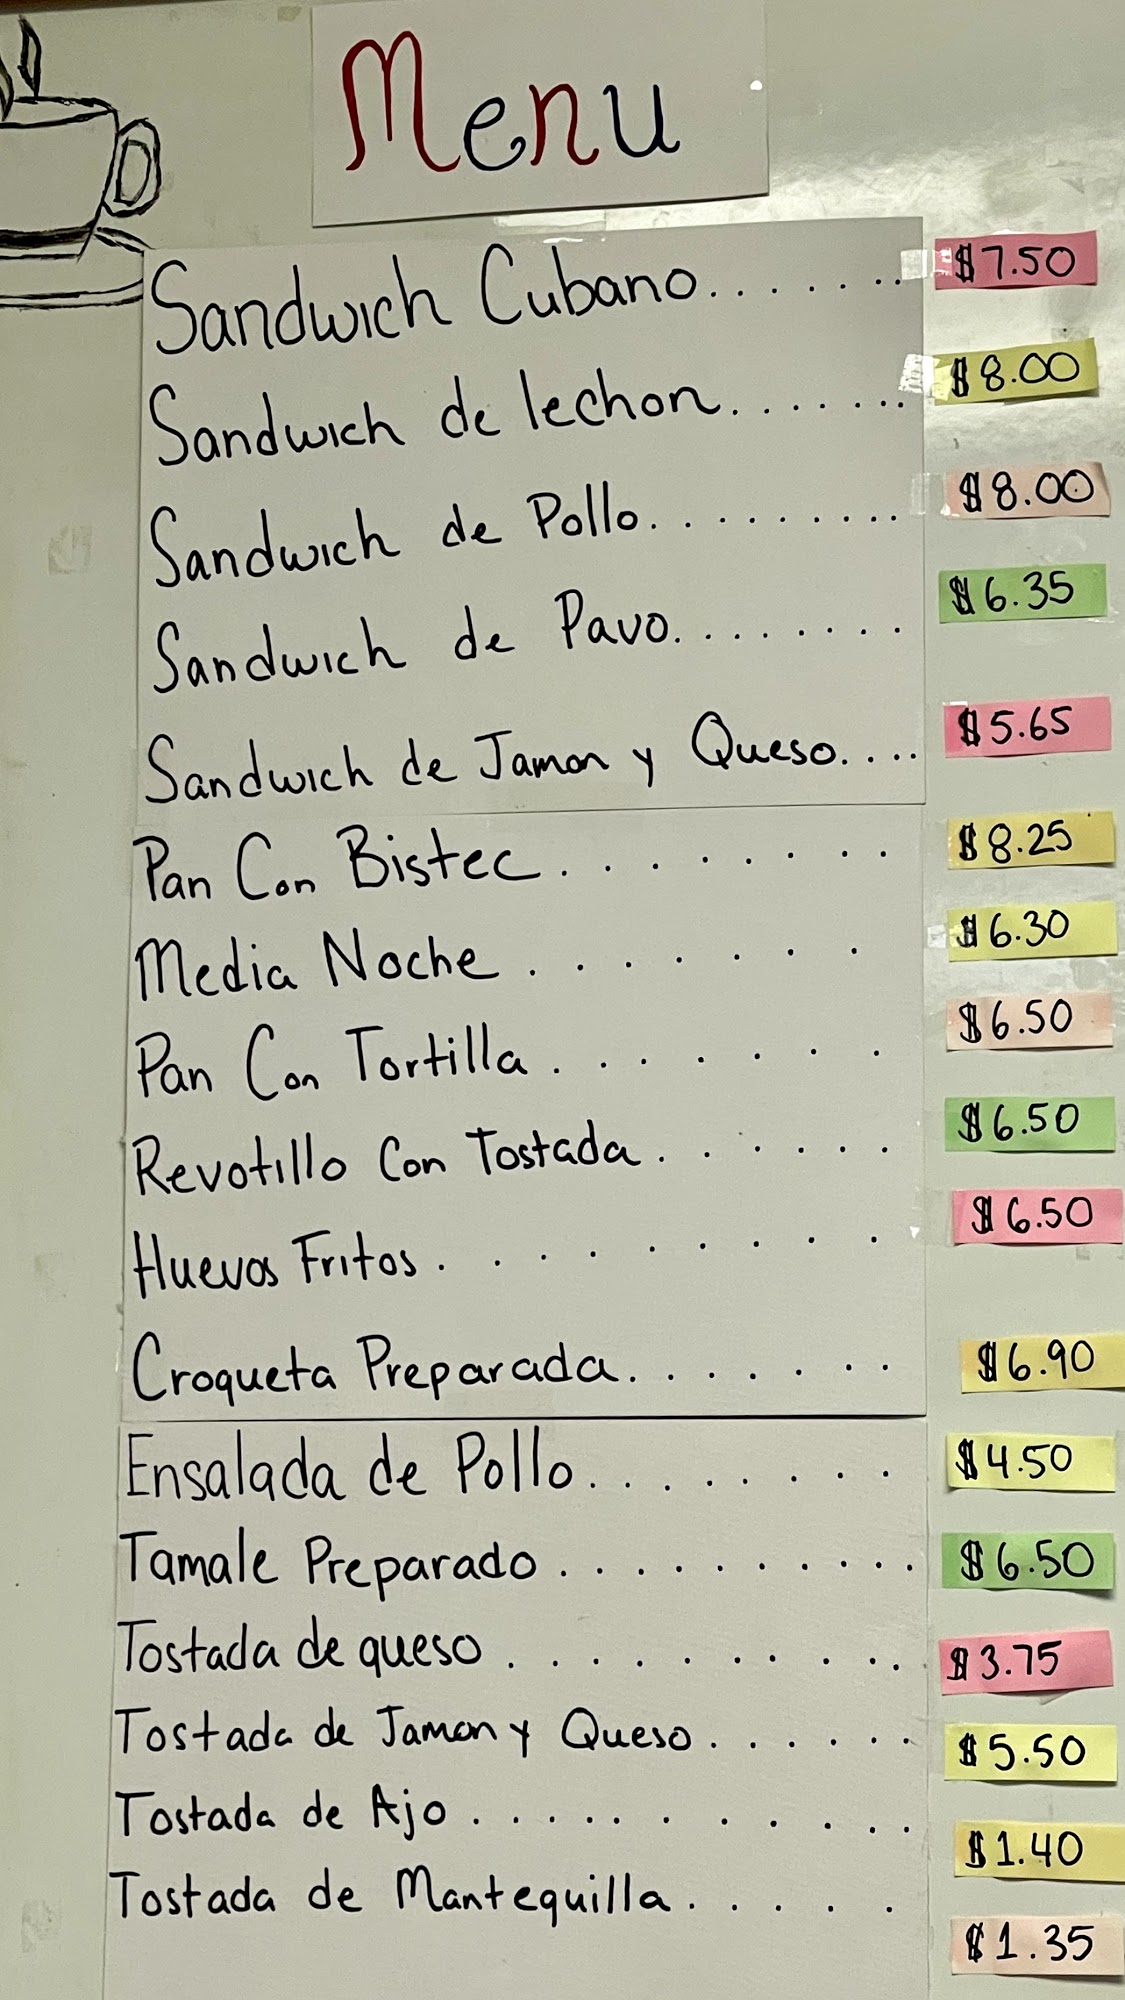 Menu
Sandwich Cubano....... $7.50
Sandwich de lechon....... $8.00
Sandwich de Pollo......... $8.00
Sandwich de Pavo........ $6.35
Sandwich de Jamon y Queso.... $5.65
Pan Con Bistec........ $8.25
Media Noche....... $6.30
Pan Con Tortilla....... $6.50
Revotillo Con Tostada...... $6.50
Huevos Fritos......... $6.50
Croqueta Preparada....... $6.90
Ensalada de Pollo........ $4.50
Tamale Preparado.......... $6.50
Tostada de queso.......... $3.75
Tostada de Jamon y Queso...... $5.50
Tostada de Ajo............ $1.40
Tostada de Mantequilla..... $1.35